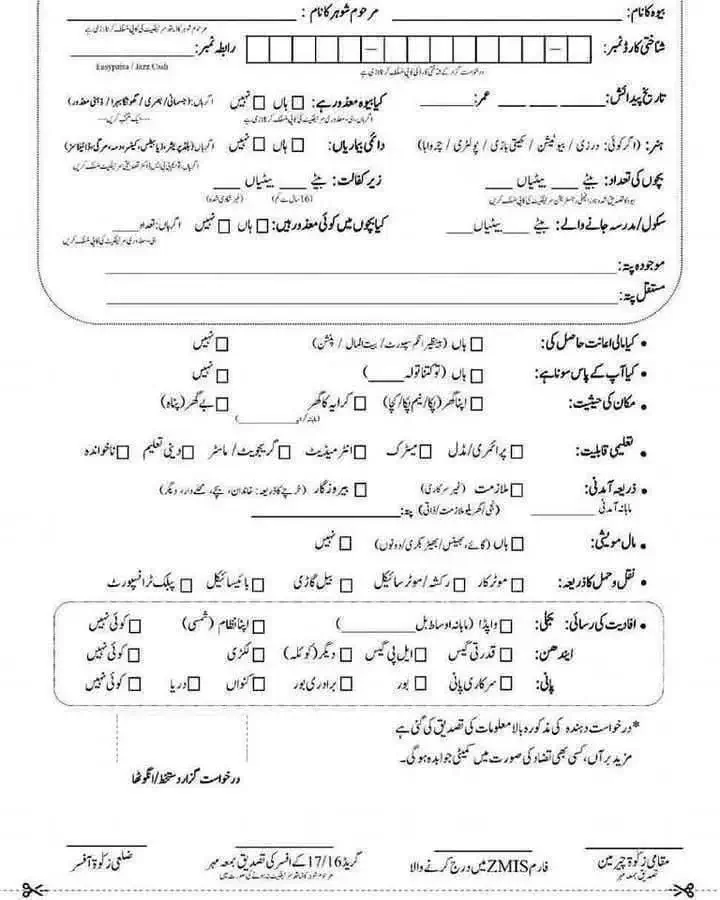 بیوہ کا نام: مرحوم شوہر کا نام:
مرحوم شوہر کا نادرا تصدیق سرٹیفکیٹ کی کاپی منسلک کرنا لازمی ہے
شناختی کارڈ نمبر: رابطہ نمبر:
درخواست گزار کے شناختی کارڈ کی کاپی منسلک کرنا لازمی ہے Easypaisa / Jazz Cash
تاریخ پیدائش: عمر: کیا بیوہ معذور ہے: ہاں نہیں اگر ہاں: (جسمانی / بصری / گونگا بہرا / ذہنی معذور)
ہنر: (اگر کوئی: درزی / بیوٹیشن / کھیتی باڑی / پولٹری / چرواہا) دائمی بیماریاں: ہاں نہیں اگر ہاں: (بلڈ پریشر، ذیابیطس، کینسر، دمہ، مرگی، ڈائیلاسز)
بچوں کی تعداد: بیٹے بیٹیاں زیر کفالت: بیٹے بیٹیاں
(16 سال سے کم) (غیر شادی شدہ)
سکول / مدرسہ جانے والے: بیٹے بیٹیاں کیا بچوں میں کوئی معذور ہیں: ہاں نہیں اگر ہاں: تعداد
موجودہ پتہ:
مستقل پتہ:
• کیا مالی اعانت حاصل کی: ہاں (بینظیر انکم سپورٹ / بیت المال / پنشن) نہیں
• کیا آپ کے پاس سونا ہے: ہاں (تو کتنا تولہ) نہیں
• مکان کی حیثیت: اپنا گھر (پکا / نیم پکا / کچا) کرایہ کا گھر بے گھر (پناہ)
(ماہانہ کرایہ)
• تعلیمی قابلیت: پرائمری / مڈل میٹرک انٹرمیڈیٹ گریجویٹ / ماسٹر دینی تعلیم ناخواندہ
• ذریعہ آمدنی: ملازمت (غیر سرکاری) بیروزگار (خرچے کا ذریعہ: خاندان، بچے، محلے دار، دیگر)
ماہانہ آمدنی (نجی / گھریلو ملازمت / ذاتی) پتہ:
• مال مویشی: ہاں (گائے، بھینس / بھیڑ بکری / دونوں) نہیں
• نقل و حمل کا ذریعہ: موٹر کار رکشہ / موٹر سائیکل بیل گاڑی بائیسائیکل پبلک ٹرانسپورٹ
• افادیت کی رسائی: بجلی: واپڈا (ماہانہ اوسط بل) اپنا نظام (شمسی) کوئی نہیں
ایندھن: قدرتی گیس ایل پی گیس دیگر (کوئلہ) لکڑی کوئی نہیں
پانی: سرکاری پانی بور برادری بور کنواں دریا کوئی نہیں
* درخواست دہندہ کی مذکورہ بالا معلومات کی تصدیق کی گئی ہے
مزید برآں، کسی بھی تضاد کی صورت میں کمیٹی جوابدہ ہوگی۔
درخواست گزار دستخط / انگوٹھا
مقامی زکوٰۃ چیرمین فارم ZMIS میں درج کرنے والا گریڈ 17/16 کے افسر کی تصدیق بمعہ مہر ضلعی زکوٰۃ آفسر
تصدیق بمعہ مہر